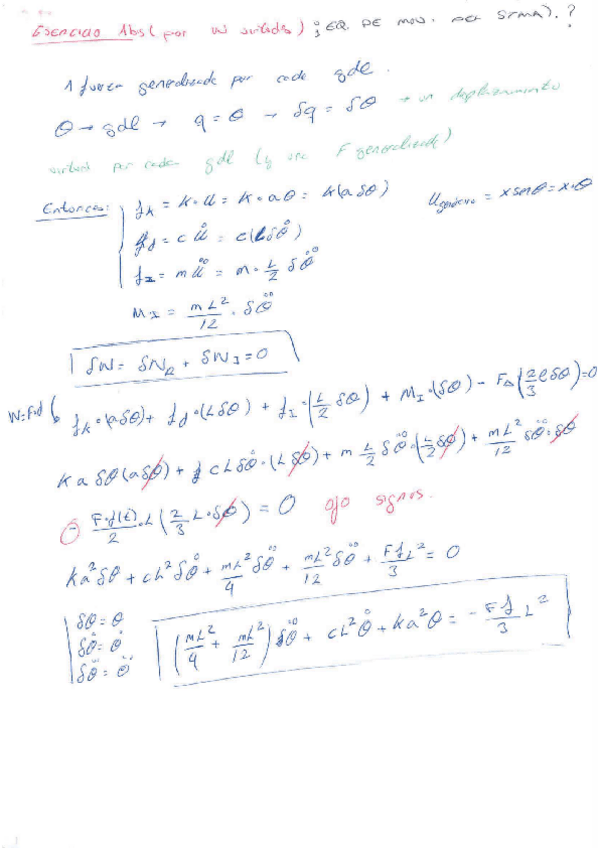 EJERCICIO Abs (por W virtuales) ¿EQ DE MOV. DEL STMA).?
1 fuerza generalizada por cada gdl.
θ → gdl → q = θ → δq = δθ → un desplazamiento
virtual por cada gdl (y una F generalizada)
Entonces: f_k = K · u = K · aθ = K(a δθ)
u_genérico = x senθ = x·θ
f_d = c u̇ = c(L δθ̇)
f_I = m ü = m · L/2 δθ̈
M_I = mL²/12 · δθ̈
δW = δW_R + δW_I = 0
W=F·d ↳ f_k·(aδθ) + f_d·(Lδθ) + f_I·(L/2 δθ) + M_I·(δθ) − F_Δ(2/3 ℓδθ) = 0
K a δθ(aδθ) + c L δθ̇·(Lδθ) + m L/2 δθ̈·(L/2 δθ) + mL²/12 δθ̈·δθ
⊖ F·f(t)/2 · L (2/3 L·δθ) = 0 ojo signos.
Ka²δθ + cL²δθ̇ + mL²/4 δθ̈ + mL²/12 δθ̈ + Ff/3 L² = 0
δθ = θ
δθ̇ = θ̇
δθ̈ = θ̈
(mL²/4 + mL²/12) θ̈ + cL²θ̇ + Ka²θ = − Ff/3 L²